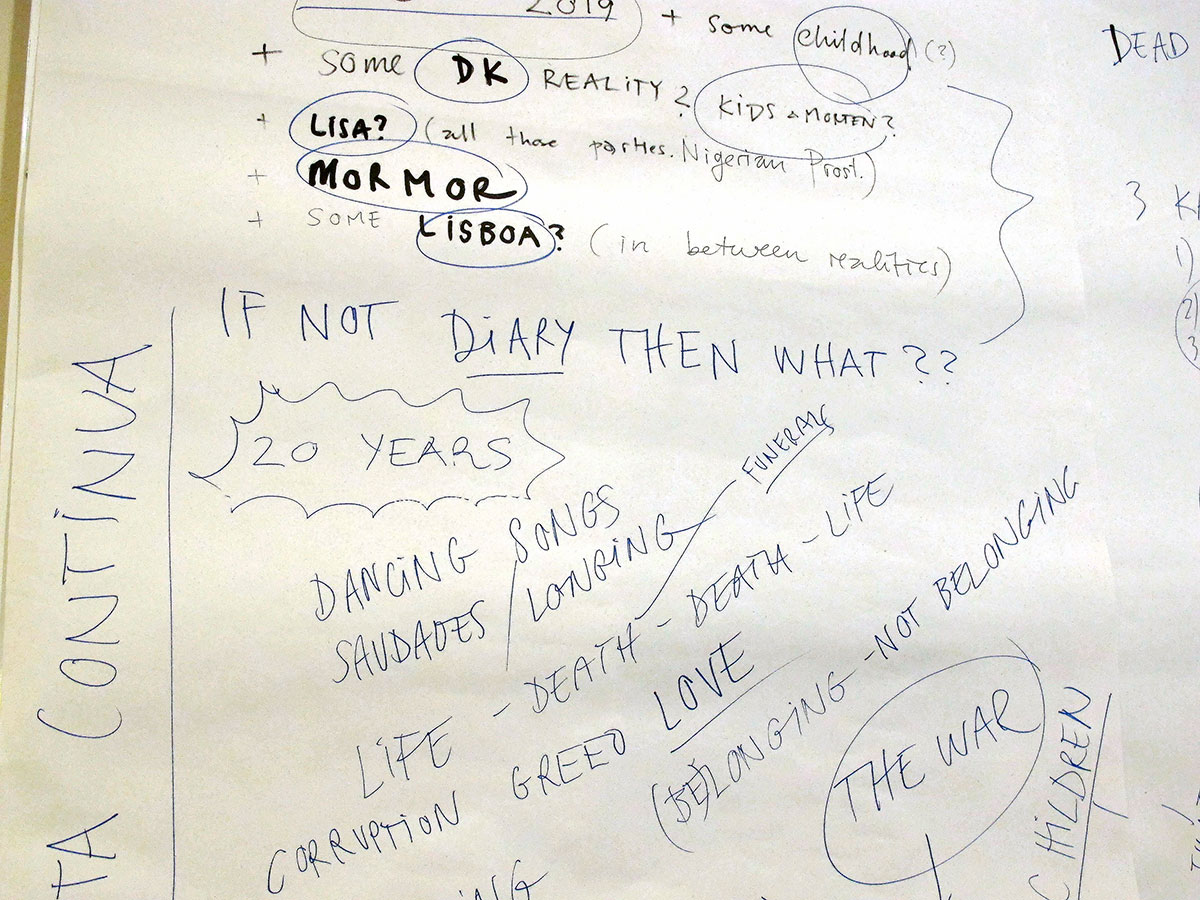 2019 + some childhood (?)
DEAD
+ SOME DK REALITY? KIDS & MORTEN?
+ LISA? (all those parties. Nigerian Prost.)
+ MORMOR
+ SOME LISBOA? (in between realities)
3
1)
2)
3
IF NOT DIARY THEN WHAT??
20 YEARS
FUNERALS
DANCING SONGS
SAUDADES LONGING
LIFE - DEATH - DEATH - LIFE
CORRUPTION GREED LOVE
(BE)LONGING - NOT BELONGING
THE WAR
CHILDREN
TA CONTINUA